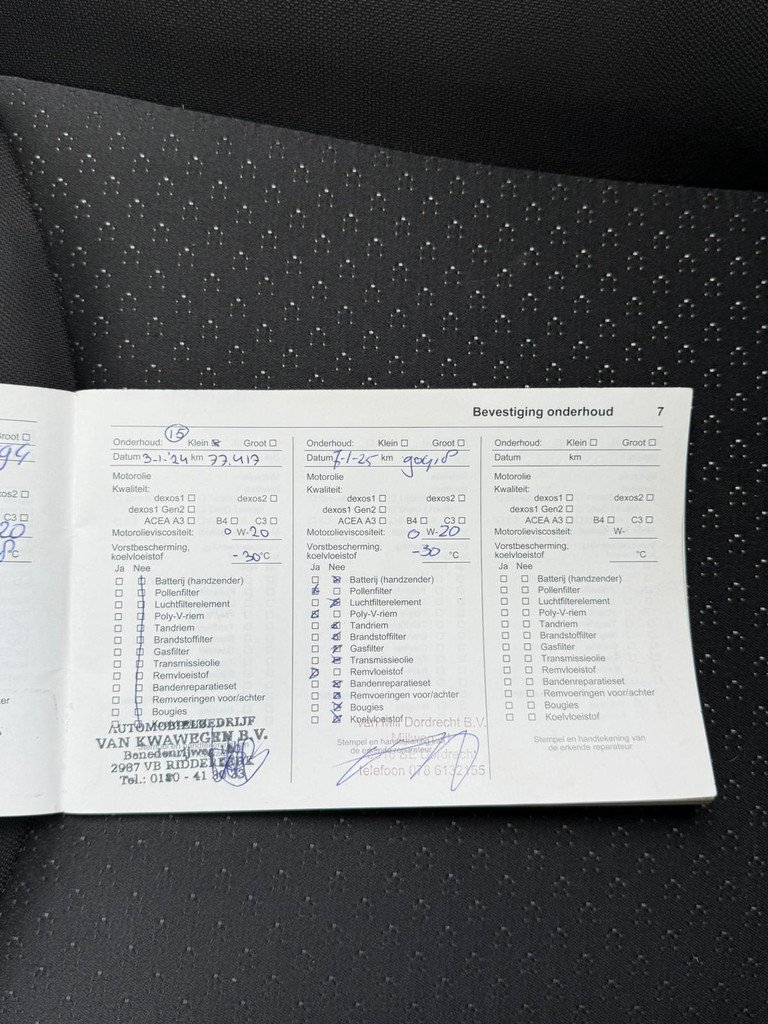 Bevestiging onderhoud 7
Groot
94
xos2
C3
20
°C
ter
15
Onderhoud: Klein Groot
Datum 3-1-'24 km 77.417
Motorolie
Kwaliteit:
dexos1 dexos2
dexos1 Gen2
ACEA A3 B4 C3
Motorolieviscositeit: 0 W-20
Vorstbescherming,
koelvloeistof -30°C
Ja Nee
Batterij (handzender)
Pollenfilter
Luchtfilterelement
Poly-V-riem
Tandriem
Brandstoffilter
Gasfilter
Transmissieolie
Remvloeistof
Bandenreparatieset
Remvoeringen voor/achter
Bougies
AUTOMOBIELBEDRIJF
VAN KWAWEGEN B.V.
Benedenrijweg
2987 VB RIDDERKERK
Tel.: 0180 - 41
Onderhoud: Klein Groot
Datum 7-1-25 km
Motorolie
Kwaliteit:
dexos1 dexos2
dexos1 Gen2
ACEA A3 B4 C3
Motorolieviscositeit: 0 W-20
Vorstbescherming,
koelvloeistof -30 °C
Ja Nee
Batterij (handzender)
Pollenfilter
Luchtfilterelement
Poly-V-riem
Tandriem
Brandstoffilter
Gasfilter
Transmissieolie
Remvloeistof
Bandenreparatieset
Remvoeringen voor/achter
Bougies
Koelvloeistof
Van Mill Dordrecht B.V.
Stempel en handtekening van
de erkende reparateur
Dordrecht
Telefoon 078 6132155
Onderhoud: Klein Groot
Datum km
Motorolie
Kwaliteit:
dexos1 dexos2
dexos1 Gen2
ACEA A3 B4 C3
Motorolieviscositeit: W-
Vorstbescherming,
koelvloeistof °C
Ja Nee
Batterij (handzender)
Pollenfilter
Luchtfilterelement
Poly-V-riem
Tandriem
Brandstoffilter
Gasfilter
Transmissieolie
Remvloeistof
Bandenreparatieset
Remvoeringen voor/achter
Bougies
Koelvloeistof
Stempel en handtekening van
de erkende reparateur